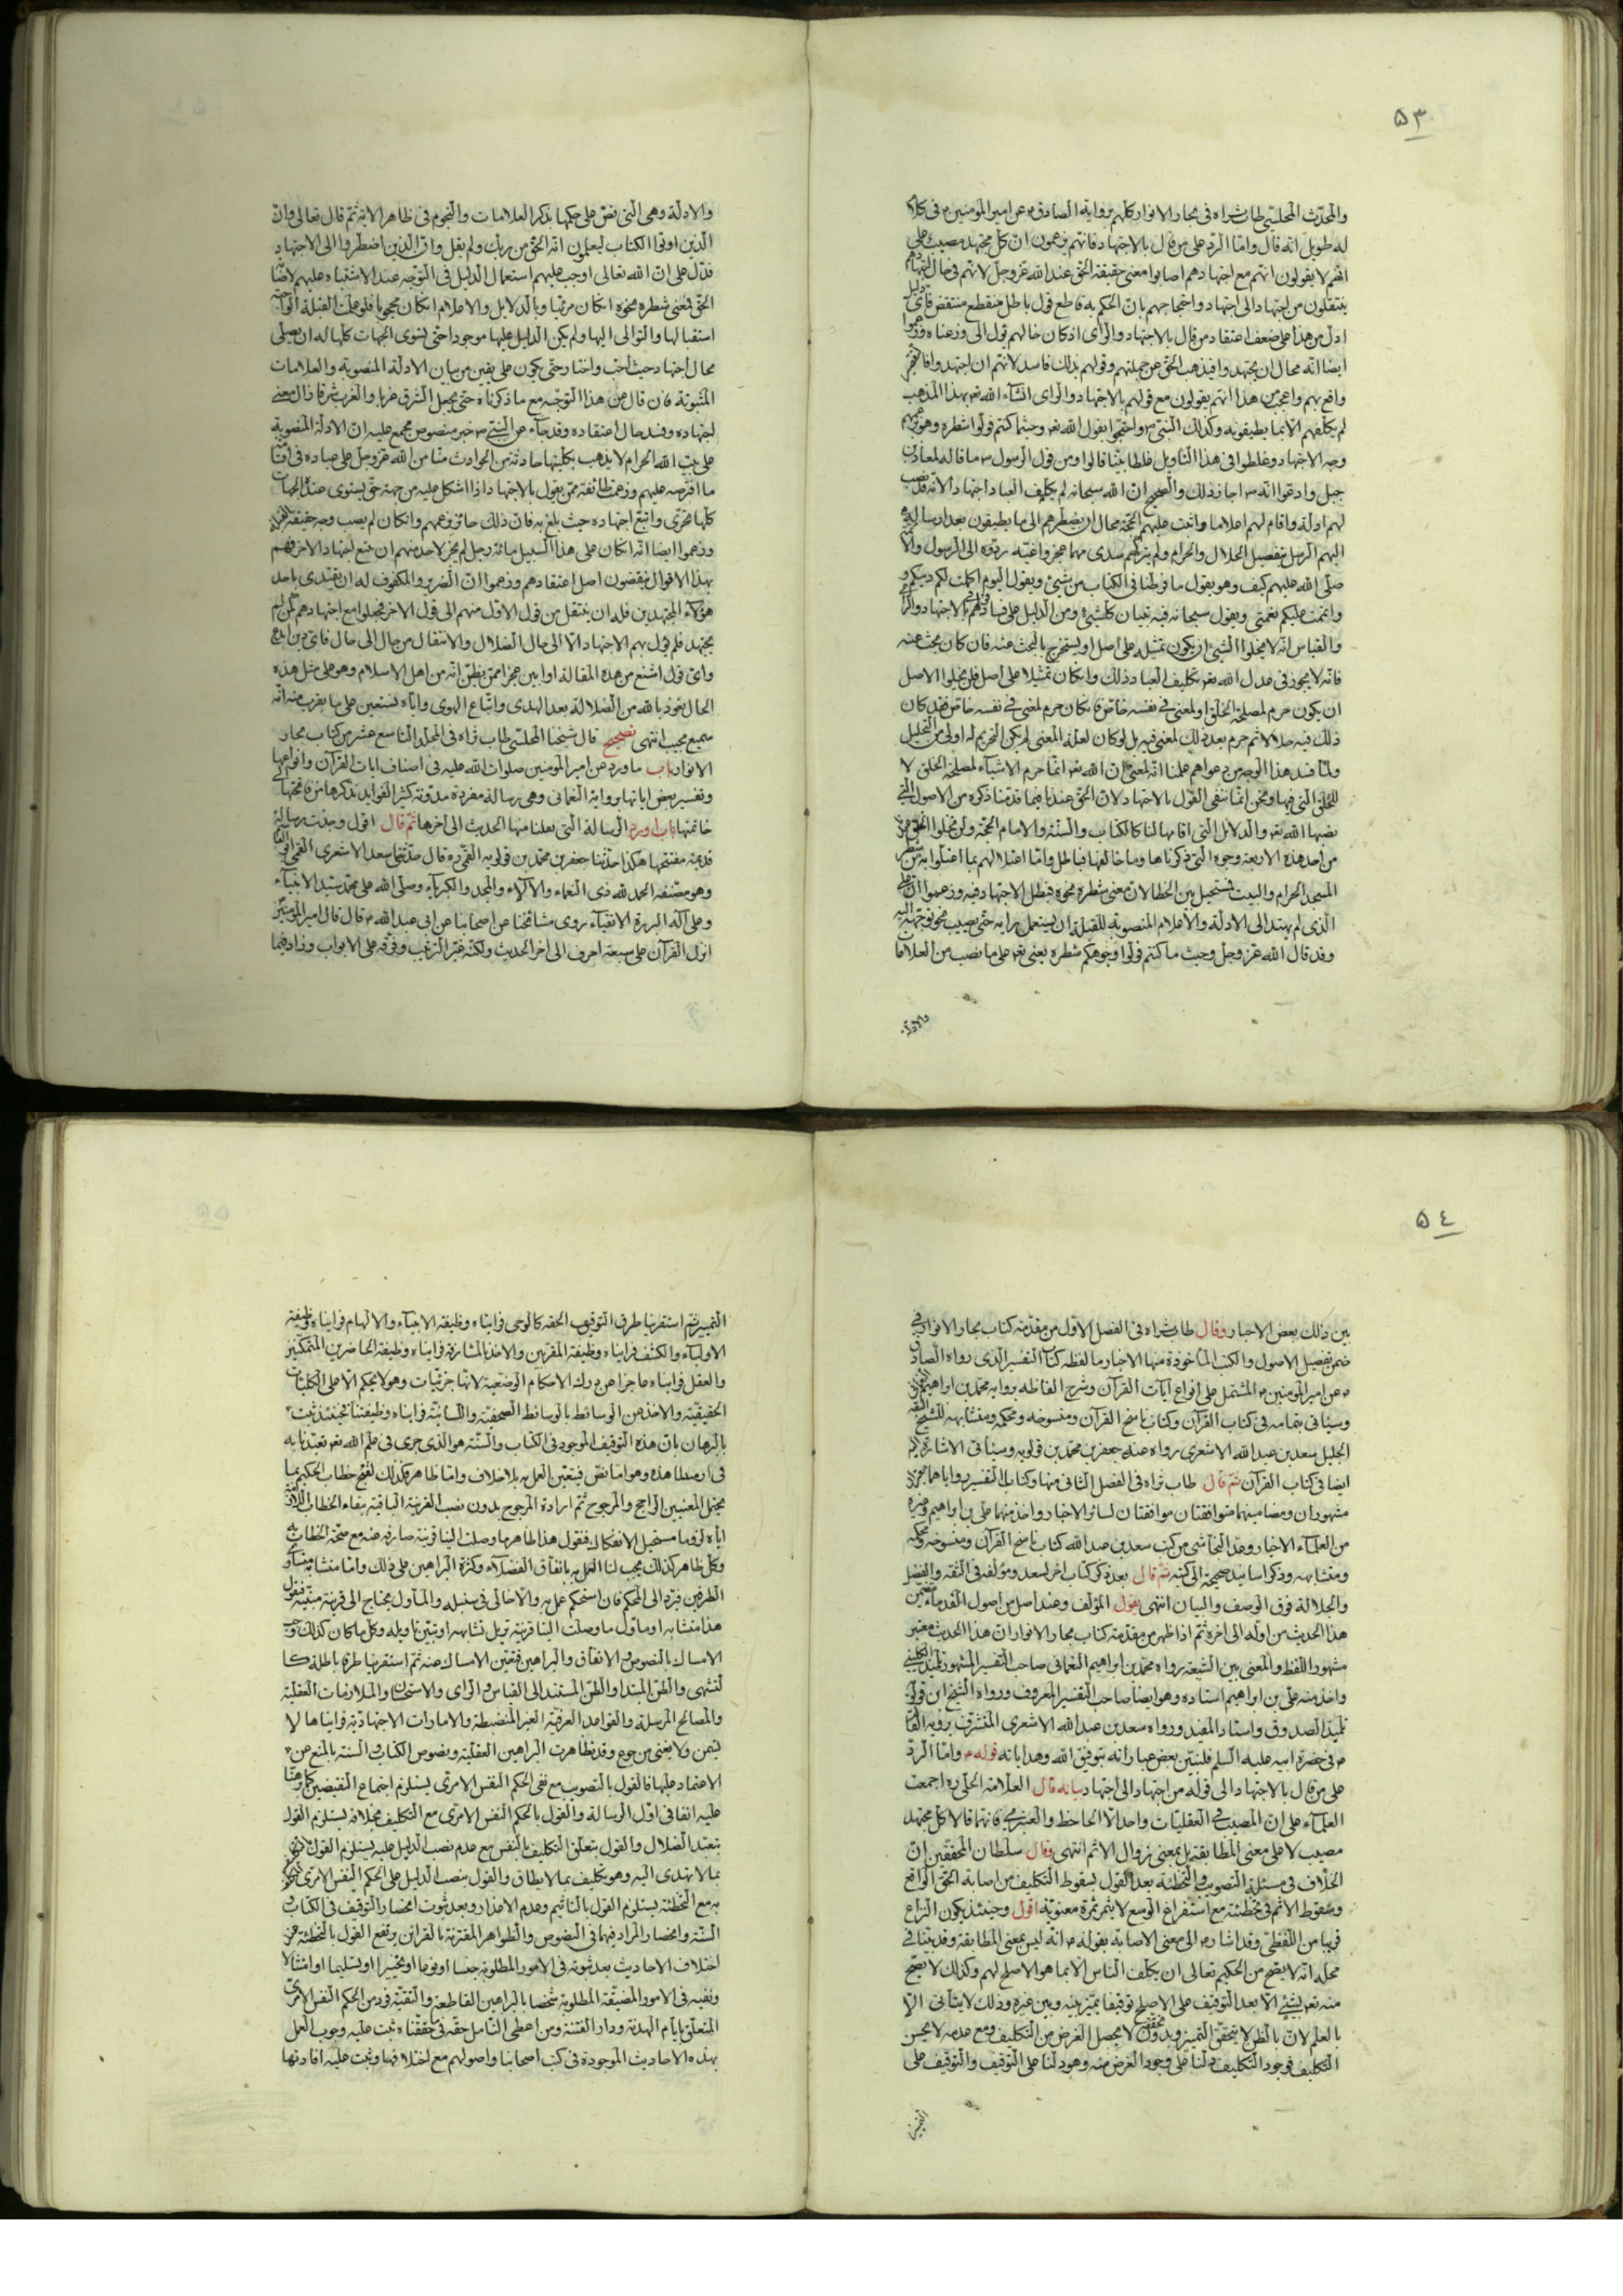 ٥٣
والمحدّث المجلسي طاب ثراه في بحار الانوار كلهم برواية الصادق ع عن امير المؤمنين ع في كلام
له طويل انه قال وامّا الردّ على من قال بالاجتهاد فانّهم يزعمون انّ كلّ مجتهد مصيب على
انّهم لا يقولون انّهم مع اجتهادهم اصابوا معنى حقيقة الحقّ عند الله عزّ وجلّ لانّهم في حال اجتهادهم
ينتقلون من اجتهاد الى اجتهاد واحتجاجهم بانّ الحكم به قاطع قول باطل منقطع منتقض فأيّ دليل
ادلّ من هذا على ضعف اعتقاد من قال بالاجتهاد والرّاى اذ كان حالهم يؤل الى وزعناه وزعموا
ايضا انّه محال ان يجتهدوا فيذهب الحقّ عن جملتهم وقولهم بذلك فاسد لانّهم ان اجتهدوا فالتقصير
واقع بهم واعجب من هذا انّهم يقولون مع قولهم بالاجتهاد والراى انّ الله تعه بهذا المذهب
لم يكلّفهم الّا بما يطيقونه وكذلك النّبيّ ص واحتجّوا بقول الله تعه وحيثما كنتم فولّوا شطره وهو بزعمهم
وجه الاجتهاد وغلطوا في هذا التأويل غلطا بيّنا قالوا ومن قول الرسول ص ما قاله لمعاذ بن
جبل وادعوا انّه ص اجاز ذلك والصحيح انّ الله سبحانه لم يكلّف العباد اجتهادا لانّه قد نصب
لهم ادلّة واقام لهم اعلاما واثبت عليهم الحجّة محال ان يضطرّهم الى ما يطيقون بعد ارساله
اليهم الرسل بتفصيل الحلال والحرام ولم يتركهم سدى مهما عجزوا عنه ردّوه الى الرسول والائمّة
صلّى الله عليهم كيف وهو يقول ما فرّطنا في الكتاب من شيئ ويقول اليوم اكملت لكم دينكم و
واتممت عليكم نعمتي ويقول سبحانه فيه تبيان كلّ شيئ ومن الدليل على فساد قولهم بالاجتهاد والرّاى
والقياس انّه لا يخلوا الشيئ ان يكون تمثيله على اصل او يستخرج بالبحث عنه فان كان بحث عنه
فانّه لا يجوز في عدل الله تعه تكليف العباد ذلك وان كان تمثيلا على اصل فلن يخلوا الاصل
ان يكون حرم لمصلحة الخلق او لمعنى في نفسه خاصّ فان كان حرم لمعنى في نفسه خاصّ فقد كان
ذلك فيه حلالا ثم حرم بعد ذلك لمعنى فيه بل لو كان لعلّة المعنى لم يكن التحريم له اولى من التحليل
ولمّا فسد هذا الوجه من دعواهم علمنا انّه لمعنى انّ الله تعه انما حرم الاشياء لمصلحة الخلق لا
للخلق الّتي فيها ونحن انّما ننفى القول بالاجتهاد لانّ الحقّ عندنا فيما قدّمنا ذكره من الاصول الّتي
نصبها الله تعه والدلايل الّتي اقامها لنا كالكتاب والسنّة والامام الحجّة ولن يخلوا الخلق
من احد هذه الاربعة وجوه الّتي ذكرناها وما خالفها فباطل وامّا اعتلالهم بما اعتلّوا به من شطر
المسجد الحرام والبيت فمستحيل بين الخطا لانّ معنى شطره نحوه فبطل الاجتهاد فيه وزعموا انّ على
الّذي لم يهتد الى الادلّة والاعلام المنصوبة للقبلة ان يستعمل رايه حتّى يصيب نحو توجّهه اليه
وقد قال الله عزّ وجلّ وحيث ما كنتم فولّوا وجوهكم شطره يعنى تعه على ما نصب من العلامات
والادلّة
والادلّة وهى الّتي نصّ على حكمها بذكر العلامات والنجوم في ظاهر الاية ثمّ قال تعالى وانّ
الّذين اوتوا الكتاب ليعلمون انّه الحقّ من ربّك ولم يقل وانّ الّذين اضطرّوا الى الاجتهاد
فدلّ على انّ الله تعالى اوجب عليهم استعمال الدليل في التوجّه عند الاشتباه عليهم لاصابة
الحقّ فمعنى شطره نحوه ان كان مرئيا وبالدلايل والاعلام ان كان محجوبا فلو علمت القبلة الواجب
استقبالها والتوالى اليها ولم يكن الدليل عليها موجودا حتى تستوى الجهات كلها له ان يصلّى
بحال اجتهاد حيث احبّ واختار حتى يكون على يقين من بيان الادلّة المنصوبة والعلامات
المثبوتة فان قال عن هذا التوجّه مع ما ذكرناه حتّى يجعل الشرق غربا والغرب شرقا زال معنى
اجتهاده وفسد حال اعتقاده وقد جآء عن النبيّ ص خبر منصوص مجمع عليه انّ الادلّة المنصوبة
على بيت الله الحرام لا يذهب بكليتها حادثة من الحوادث منّا من الله عزّ وجلّ على عباده في اقامة
ما افترضه عليهم وزعمت طائفة ممّن يقول بالاجتهاد اذا اشكل عليه من جهة حتّى يستوى عنده الجهات
كلّها تحرّى واتّبع اجتهاده حيث بلغ به فانّ ذلك جائز بزعمهم وان كان لم يصب وجه حقيقة القبلة
وزعموا ايضا انّه ان كان على هذا السبيل مائة رجل لم يجز لاحد منهم ان يتبع اجتهاد الاخر فهم
بهذه الاقوال ينقضون اصل اعتقادهم وزعموا انّ الضرير والمكفوف له ان يقتدى باحد
هؤلاء المجتهدين فله ان ينتقل من قول الاوّل منهم الى قول الاخر فجعلوا مع اجتهادهم كمن لم
يجتهد فلم يؤل بهم الاجتهاد الّا الى حال الضلال والانتقال من حال الى حال فايّ دين ابدع
وايّ قول اشنع من هذه المقالة او ابين عجزا ممّن يظنّ انّه من اهل الاسلام وهو على مثل هذه
الحال نعوذ بالله من الضلالة بعد الهدى واتّباع الهوى وايّاه نستعين على ما يقرب منه انّه
سميع مجيب انتهى تصحيح قال شيخنا المجلسي طاب ثراه في المجلّد التاسع عشر من كتاب بحار
الانوار باب ما ورد عن امير المؤمنين صلوات الله عليه في اصناف ايات القرآن وانواعها
وتفسير بعض اياتها برواية النعمانى وهى رسالة مفردة مدوّنة كثير الفوايد نذكرها من فاتحتها
خاتمتها باب اورد الرسالة الّتي نقلنا منها الحديث الى اخرها ثمّ قال اقول وجدت رسالة
قديمة مفتتحها هكذا حدّثنا جعفر بن محمّد بن قولويه القمّي ره قال حدّثنى سعد الاشعرى القمّي
وهو مصنّفه الحمد لله ذى النعماء والآلاء والمجد والكبرياء وصلّى الله على محمّد سيّد الانبياء
وعلى آله البررة الاتقياء روى مشائخنا عن اصحابنا عن ابى عبد الله ع قال قال امير المؤمنين
انزل القرآن على سبعة احرف الى اخر الحديث ولكنّه غيّر الترتيب وفرّقه على الابواب وزاد فيما
٥٤
بين ذلك بعض الاخبار وقال طاب ثراه في الفصل الاوّل من مقدّمة كتاب بحار الانوار في
ضمن تفصيل الاصول والكتب الماخوذة منها الاخبار ما لفظه كتاب التفسير الذى رواه الصادق
ع عن امير المؤمنين ع المشتمل على انواع آيات القرآن وشرح الفاظه رواية محمّد بن ابراهيم
وسيأتى بتمامه في كتاب القرآن وكتاب ناسخ القرآن ومنسوخه ومحكمه ومتشابهه للشيخ الثقة
الجليل سعد بن عبد الله الاشعرى رواه عنه جعفر بن محمّد بن قولويه وسيأتى الاشارة اليه
ايضا في كتاب القرآن ثمّ قال طاب ثراه في الفصل الثانى منها وكتابا التفسير رواياهما
مشهوران ومضامينهما متوافقتان موافقتان لسائر الاخبار واخذ منهما على بن ابراهيم وغيره
من العلماء الاخيار وعدّ النجاشى من كتب سعد بن عبد الله كتاب ناسخ القرآن ومنسوخه ومحكمه
ومتشابهه وذكر اسانيد صحيحة الى كتبه ثمّ قال بعد ذكر كتاب اخر لسعد ومؤلّفه في الثقة والفضل
والجلالة فوق الوصف والبيان انتهى يقول المؤلّف وعند اصل من اصول القدماء يتضمن
هذا الحديث من اوّله الى اخره ثمّ اذا ظهر من مقدّمة كتاب بحار الانوار انّ هذا الحديث معتبر
مشهور اللفظ والمعنى بين الشيعة رواه محمّد بن ابراهيم النعمانى صاحب التفسير المشهور تلميذ الكلينى
واخذ منه على بن ابراهيم استاده وهو ايضا صاحب التفسير المعروف ورواه الشيخ ابن قولويه
تلميذ الصدوق واستاد المفيد ورواه سعد بن عبد الله الاشعرى المتشرّف برؤية القائم
ع في حضرة ابيه عليه السلام فلنبيّن بعض عباراته بتوفيق الله وهداياته قوله ع وامّا الردّ
على من قال بالاجتهاد الى قوله من اجتهاد الى اجتهاد بيانه قال العلّامة الحلّى ره اجمعت
العلماء على انّ المصيب في العقليّات واحد الّا الجاحظ والعنبرى فانّهما قالا كلّ مجتهد
مصيب لا على معنى المطابقة بل بمعنى زوال الاثم انتهى وقال سلطان المحقّقين انّ
الخلاف في مسئلة التصويب والتخطئة بعد القول بسقوط التكليف من اصابة الحقّ الواقع
وسقوط الاثم في تخطئته مع استفراغ الوسع لا يثمر ثمرة معنويّة اقول وحينئذ يكون النزاع
قريبا من اللفظىّ وقد اشار ع الى معنى الاصابة بقوله ع انّه ليس بمعنى المطابقة وقد بيّنا في
محلّه انّه لا يصحّ من الحكيم تعالى ان يكلّف الناس الّا بما هو الاصلح لهم وكذلك لا يصحّ
منه تعه بشيئ الّا بعد التوقيف على الاصلح توقيفا يميّز بينه وبين غيره وذلك لا يتأتى الّا
بالعلم لانّ بالظن لا يتحقّق التميّز وبدون تحقّقه لا يحصل الغرض من التكليف ومع عدمه لا يحسن
التكليف فوجود التكليف دلّنا على وجود الغرض منه وهو دلّنا على التوقيف والتوقيف على
التميز
التمييز ثمّ استقرينا طرق التوقيف الحقّة كالوحى فرايناه وظيفة الانبياء والالهام فرايناه وظيفة
الاولياء والكشف فرايناه وظيفة المقربين والاخذ بالمشارفة فرايناه وظيفة الحاضرين المتمكّنين
والعقل فرايناه عاجزا عن درك الاحكام الوضعيّة لانها جزئيّات وهو لا يحكم الّا على الكليّات
الحقيقيّة والاخذ من الوسائط بالوسائط الصحفيّة واللسانيّة فرايناه وظيفتنا فحينئذ ثبت
بالبرهان بانّ هذه التوقيف الموجود في الكتاب والسنّة هو الذى جرى في علم الله تعه تعبّدنا به
في ارصدنا هذه وهو امّا نصّ فيتعيّن العمل به بلا خلاف وامّا ظاهر فكذلك لقبح خطاب الحكيم بما
يحتمل المعنيين الراجح والمرجوح ثمّ ارادة المرجوح بدون نصب القرينة الباقية ببقاء الخطاب
ايّاه لزوما مستحيل الانفكاك فنقول هذا ظاهر ما وصلت الينا قرينة صارفة عنه مع صحّة الخطاب به
وكلّ ظاهر كذلك يجب لنا العمل به باتّفاق الفضلاء وكثرة البراهين على ذلك وامّا متشابه متساوى
الطرفين فيردّ الى المحكم فان استحكم عمل به والّا خلّى في سنبله والمأوّل يحتاج الى قرينة مبيّنة فنقول
هذا متشابه او مأوّل ما وصلت الينا قرينة تزيل تشابهه او تبيّن تاويله وكلّ ما كان كذلك وجب
الامساك بالنصوص والاتّفاق والبراهين فيتعيّن الامساك عنه ثمّ استقرينا طرق باطلة كا
لتشهى والظنّ المبتدا والظنّ المستند الى القياس والراى والاستحسان والملازمات العقليّة
والمصالح المرسلة والقواعد العرفيّة الغير المنضبطة والامارات الاجتهاديّة فرايناها لا
يسمن ولا يغنى من جوع وقد تظاهرت البراهين العقليّة ونصوص الكتاب والسنّة بالمنع من
الاعتماد عليها فالقول بالتصويب مع نفى الحكم النفس الامرىّ يستلزم اجتماع النقيضين كما برهنّا
عليه انفا في اوّل الرسالة والقول بالحكم النفس الامرىّ مع التكليف بخلافه يستلزم القول
بتعبّد الضلال والقول بتعلّق التكليف بالنفس مع عدم نصب الدليل عليه يستلزم القول
بما لا يهتدى اليه وهو تكليف بما لا يطاق والقول بنصب الدليل على الحكم النفس الامرى
به مع التخطئة يستلزم القول بالتأثيم وعدم الاعذار وبعد ثبوت انحصار التوقيف في الكتاب و
السنّة وانحصار المراد فيهما في النصوص والظواهر المقترنة بالقراين وقع القول بالتخطئة
اختلاف الاحاديث بعد ثبوته في الامور المطلوبة جنسا او نوعا او تخييرا او تسليما او امتثالا
ونفيه في الامور المضيّقة المطلوبة شخصا بالبراهين القاطعة والتقيّة فرد من الحكم النفس الامرى
المتعلّق بايام الهدنة ودار الفتنة ومن اعطى التامّل حقّه في تحقّقناه ثبت عليه وجوب العمل
بهذه الاحاديث الموجودة في كتب اصحابنا واصولهم مع اختلافها وثبت عليه افادتها